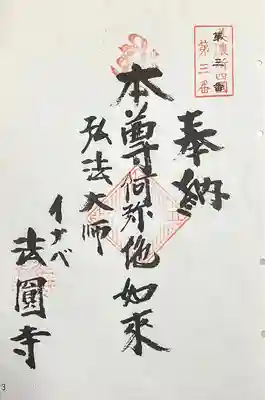 美濃新四國
第三番
奉納
本尊阿弥他如来
弘法大師
イナベ
法圓寺
3